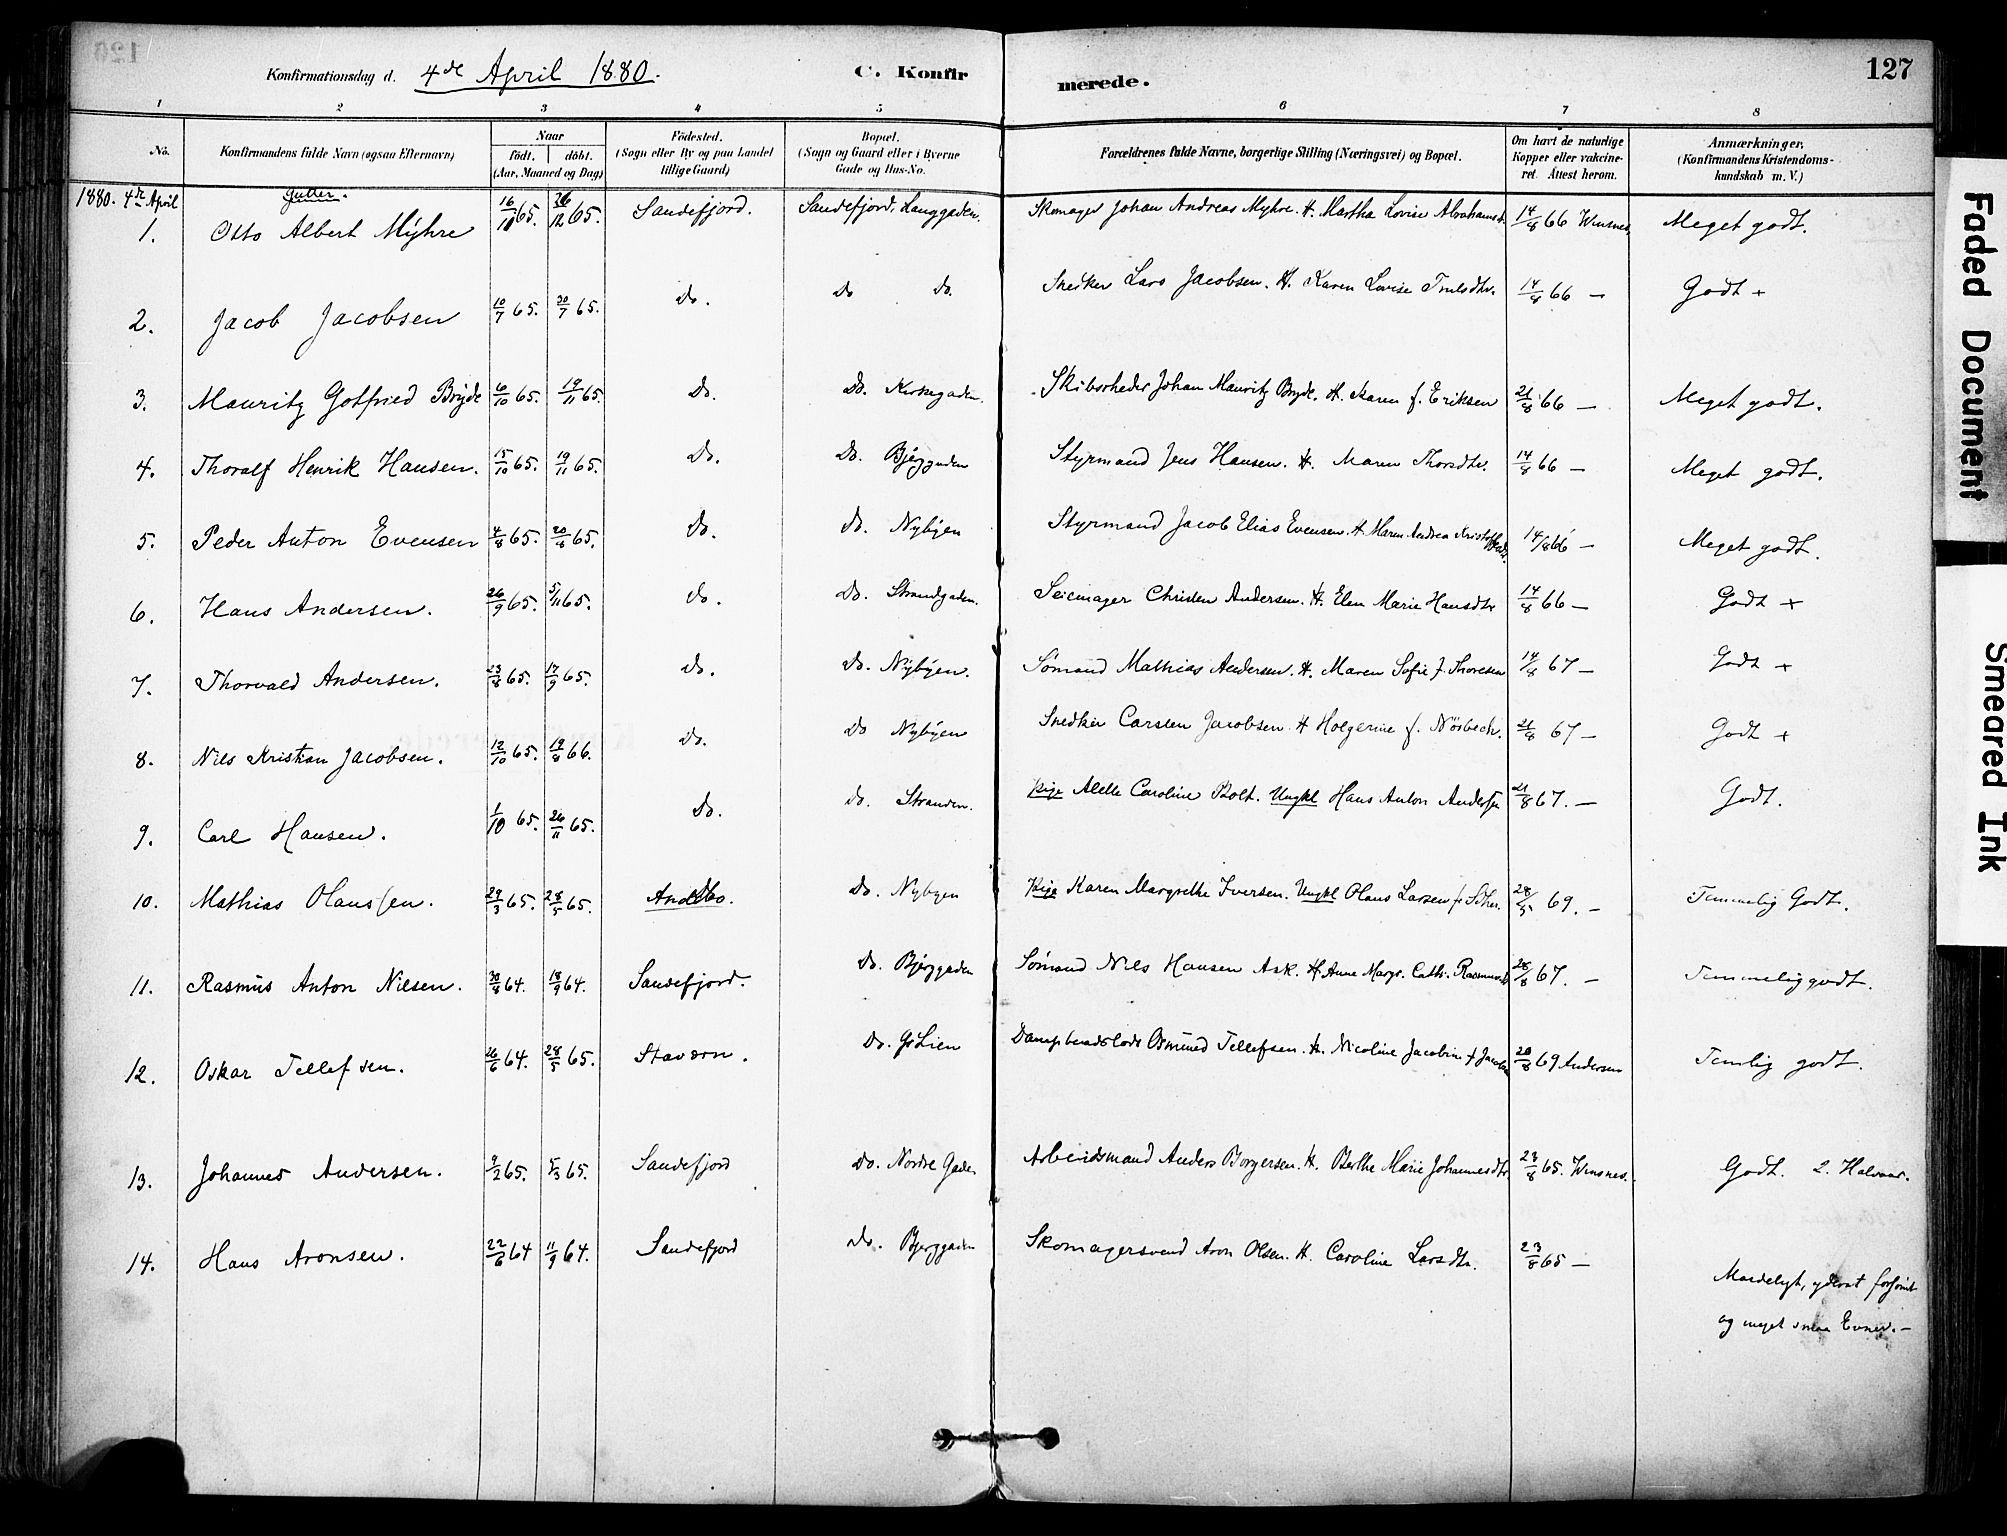 Konfirmationsdag d. 4de April 1880.
C. Konfirmerede.
127
1 2 3 4 5 6 7 8
No. Konfirmandens fulde Navn (ogsaa Efternavn) Naar født. døbt. (Aar, Maaned og Dag) Fødested. (Sogn eller By og paa Landet tillige Gaard) Bopæl. (Sogn og Gaard eller i Byerne Gade og Hus-No. Forældrenes fulde Navne, borgerlige Stilling (Næringsvei) og Bopæl. Om havt de naturlige Kopper eller vakcineret. Attest herom. Anmærkninger, (Konfirmandens Kristendomskundskab m. V.)
1880. 4de April Gutter.
1. Otto Albert Myhre 16/11 65. 26/12 65. Sandefjord. Sandefjord, Langgaden. Skomager Johan Andreas Myhre. H. Martha Lovise Abrahamsd. 14/8 66 Winsnes. Meget godt.
2. Jacob Jacobsen 10/7 65. 30/7 65. Do. Do Do. Snedker Lars Jacobsen. H. Karen Lovise 14/8 66 — Godt +
3. Mauritz Gotfried Bryde 6/10 65. 19/11 65. Do. Do. Kirkegaden. Skibsrheder Johan Mauritz Bryde. H. Karen f. Eriksen 21/8 66 — Meget godt.
4. Thoralf Henrik Hansen. 15/10 65. 19/11 65. Do. Do. Bjerggaden Styrmand Jens Hansen. H. Maren Thorsdtr. 14/8 66 — Meget godt.
5. Peder Anton Evensen 4/8 65. 20/8 65. Do. Do. Nybyen Styrmand Jacob Elias Evensen. H. Maren Andrea 14/8 66 — Meget godt.
6. Hans Andersen. 26/9 65. 5/11 65. Do. Do. Strandgaden. Seilmager Christen Andersen. H. Elen Marie Hansdtr 14/8 66 — Godt +
7. Thorvald Andersen. 23/8 65. 17/9 65. Do. Do. Nybyen. Sømand Mathias Andersen. H. Maren Sofie f. Thoresen 14/8 67 — Godt +
8. Nils Kristian Jacobsen. 12/10 65. 19/8 66. Do. Do Nybyen Snedker Carsten Jacobsen. H Holgerine f. Nørbech. 21/8 67 — Godt +
9. Carl Hansen. 1/10 65. 26/11 65. Do. Do. Stranden. Pige Caroline Bolt. Ungkl Hans Anton Andersen 21/8 67. — Godt.
10. Mathias Olaussen. 29/3 65. 28/5 65. Andebo. Do. Nybyen Pige Karen Margrethe Iversen. Ungkl Olaus Larsen 28/5 69. — Temmelig Godt.
11. Rasmus Anton Nilsen. 30/8 64. 18/9 64. Sandefjord. Do. Bjerggaden Sømand Nils Hansen Ask. H. Anne Margr. Cath. Rasmusd. 28/8 67. — Temmelig godt.
12. Oskar Tellefsen. 26/6 64. 28/5 65. Stavern. Do. Lien Dampbaadslods Osmund Tellefsen. H. Nicoline Jacobine f 20/8 69 Andersen Temlig godt.
13. Johannes Andersen. 9/2 65. 5/3 65. Sandefjord Do. Nordre Gade. Arbeidsmand Anders Borgersen. H. Berthe Marie Johannesdtr. 23/8 65. Winsnes. Godt. 2. Halvaar.
14. Hans Aronsen. 22/6 64 11/9 64. Sandefjord Do. Bjerggaden Skomagersvend Aron Olsen. H. Caroline Larsdtr. 23/8 65 — Maadeligt, yderst forsømt
og meget smaa Evner. —
Faded Document
Smeared Ink